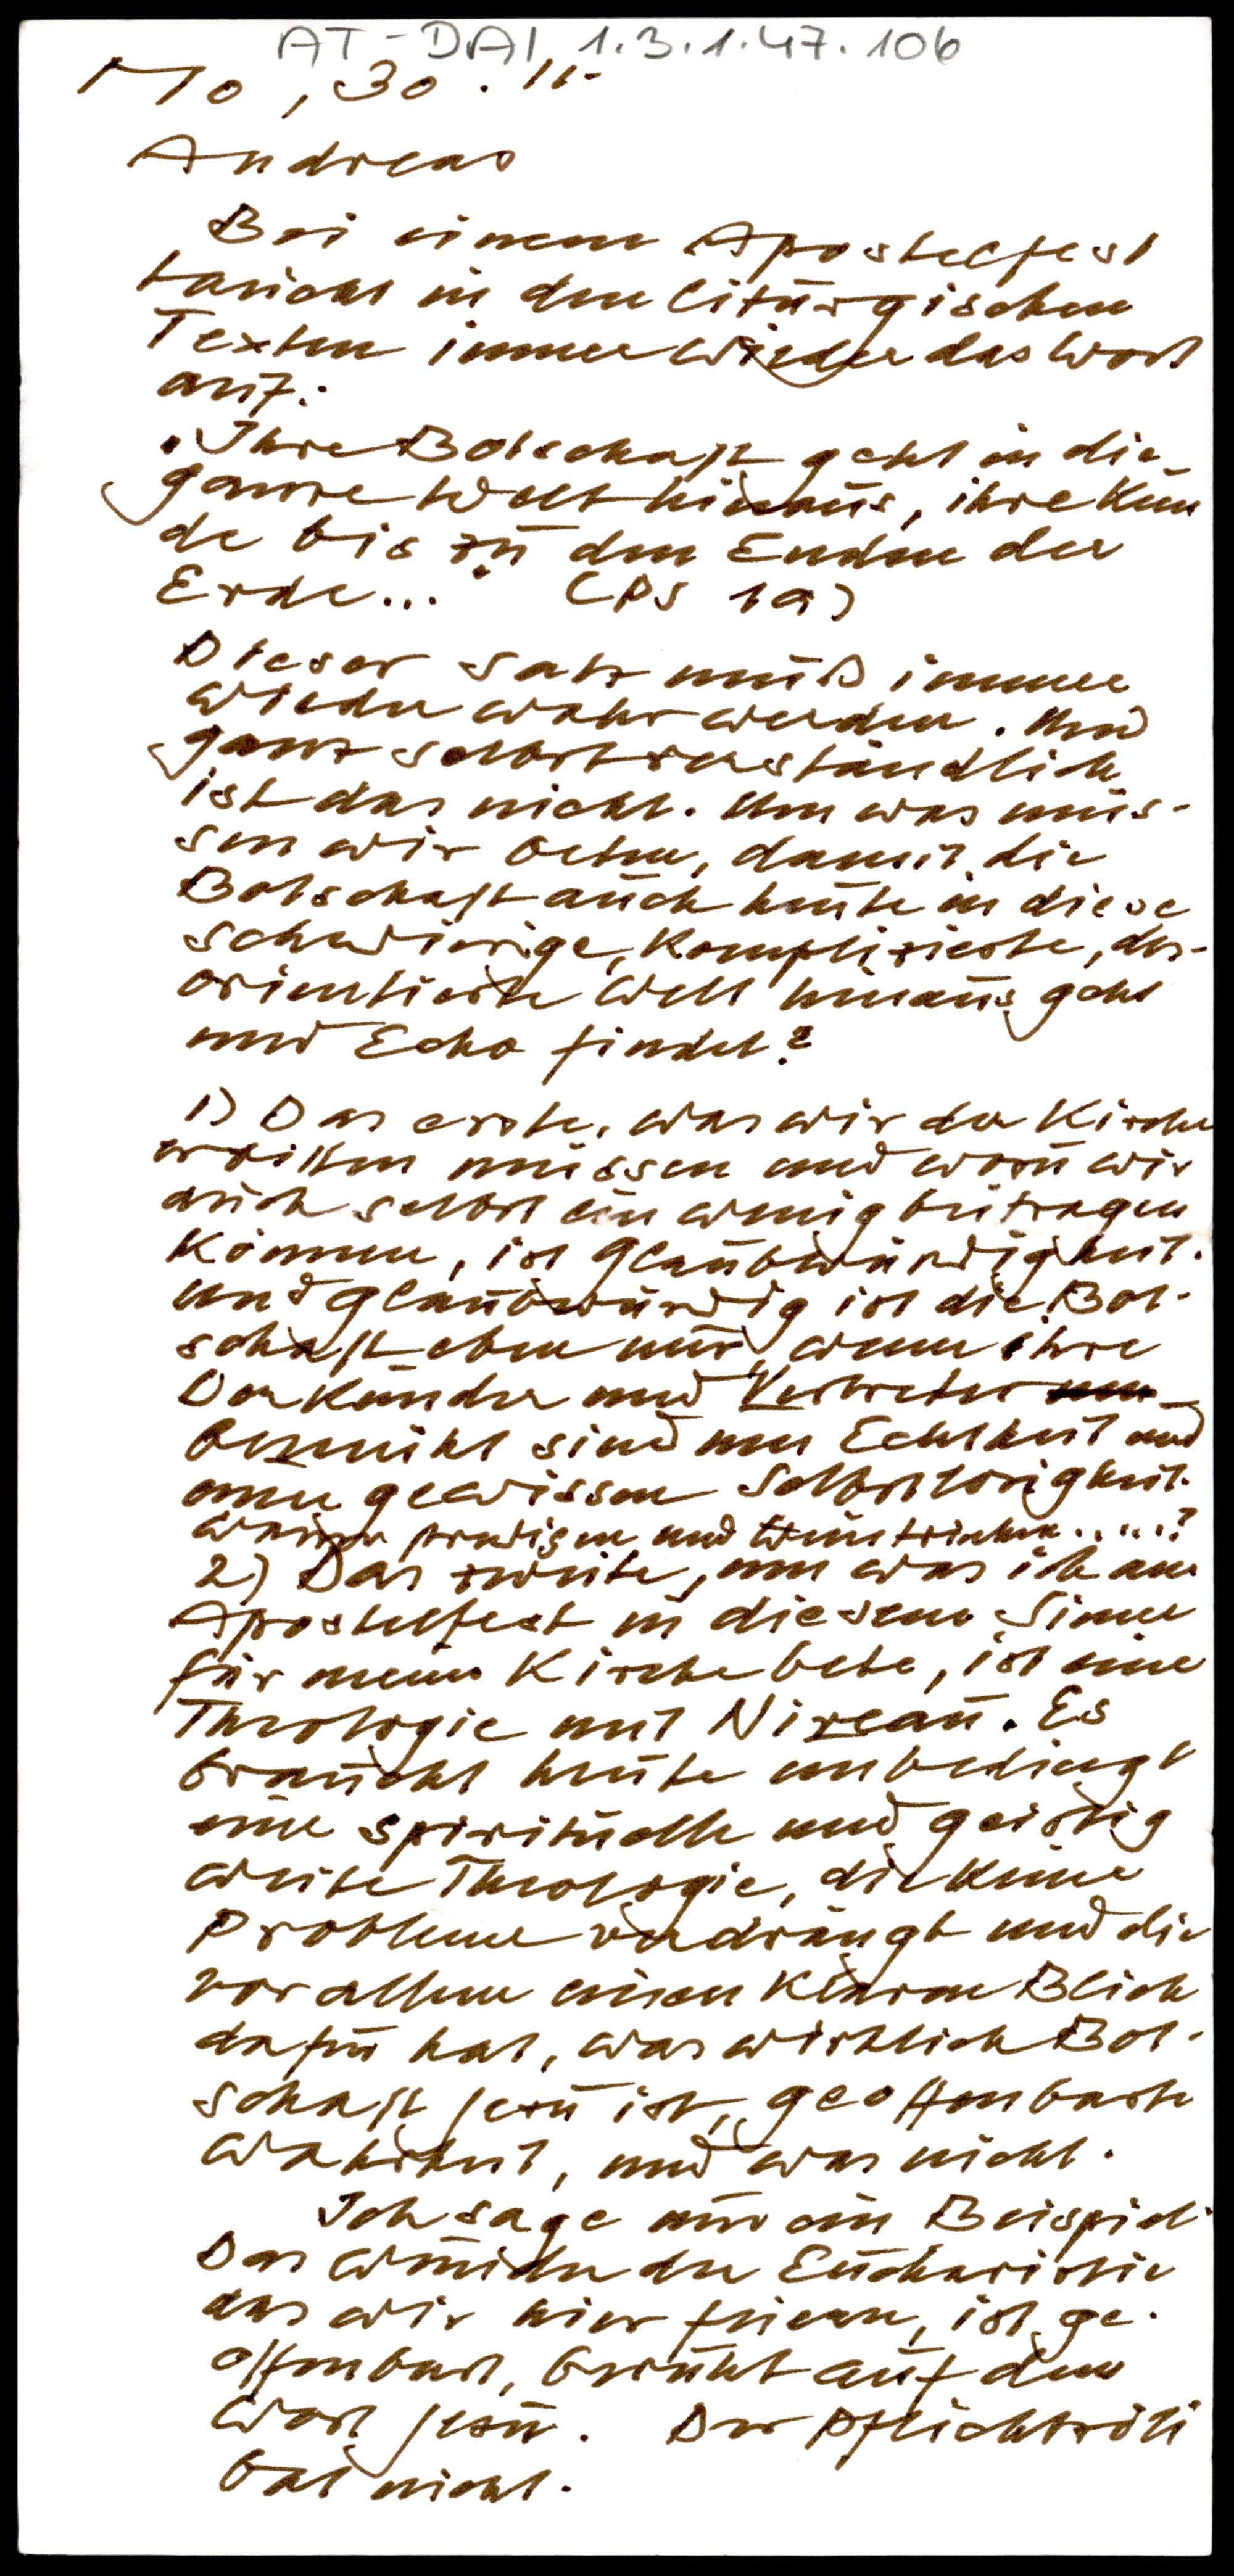 AT-DAI 1.3.1.47.106
Mo, 30. 11.
Andreas
Bei einem Apostelfest
taucht in den liturgischen
Texten immer wieder das Wort
auf:
"Ihre Botschaft geht in die
ganze Welt hinaus, ihre Kun
de bis zu den Enden der
Erde..." (Ps 19)
Dieser Satz muß immer
wieder wahr werden. Und
ganz selbstverständlich
ist das nicht. Um was müs-
sen wir beten, damit die
Botschaft auch heute in diese
schwierige, komplizierte, des-
orientierte Welt hinaus geht
und Echo findet?
1) Das erste, was wir der Kirche
erbitten müssen und wozu wir
auch selbst ein wenig beitragen
können, ist Glaubwürdigkeit.
Und glaubwürdig ist die Bot-
schaft eben nur, wenn ihre
Verkünder und Vertreter
bemüht sind um Echtheit und
einer gewissen Selbstlosigkeit.
Wasser predigen und Wein trinken.....?
2) Das zweite, um was ich am
Apostelfest in diesem Sinne
für meine Kirche bete, ist eine
Theologie mit Niveau. Es
braucht heute unbedingt
eine spirituelle und geistig
weite Theologie, die keine
Probleme verdrängt und die
vor allem einen klaren Blick
dafür hat, was wirklich Bot-
schaft Jesu ist, geoffenbarte
Wahrheit, und was nicht.
Ich sage nur ein Beispiel:
Das Wunder der Eucharistie
das wir hier feiern, ist ge-
offenbart, beruht auf dem
Wort Jesu. Der Pflichtzöli
bat nicht.